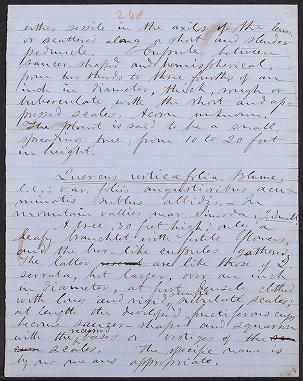 248
either sessile in the axils of the leaves,
or scattered along a short and slender
peduncle. Cupule between
saucer-shaped and hemispherical,
from two thirds to three fourths of an
inch in diameter, thick, rough or
tuberculate with the short and ap-
pressed scales. Acorn unknown.
The plant is said to be a small
spreading tree, from 10 to 20 feet
in height.
Quercus urticaefolia, Blume,
l.c.; var. foliis angustioribus acu-
minatis subtus albidis. – In
mountain vallies near Simoda,
A tree, 30 feet high; only a
leafy branchlet with fertile flowers,
and the bur-like cupules gathered.
The latter are like those of
serrata, but larger, over an inch
in diameter, at first densely clothed
with long and rigid subulate scales;
at length the developed fructiferous cups
become saucer-shaped and squarrose
with the bases or vestiges of the
scales. The specific name is
by no means appropriate.